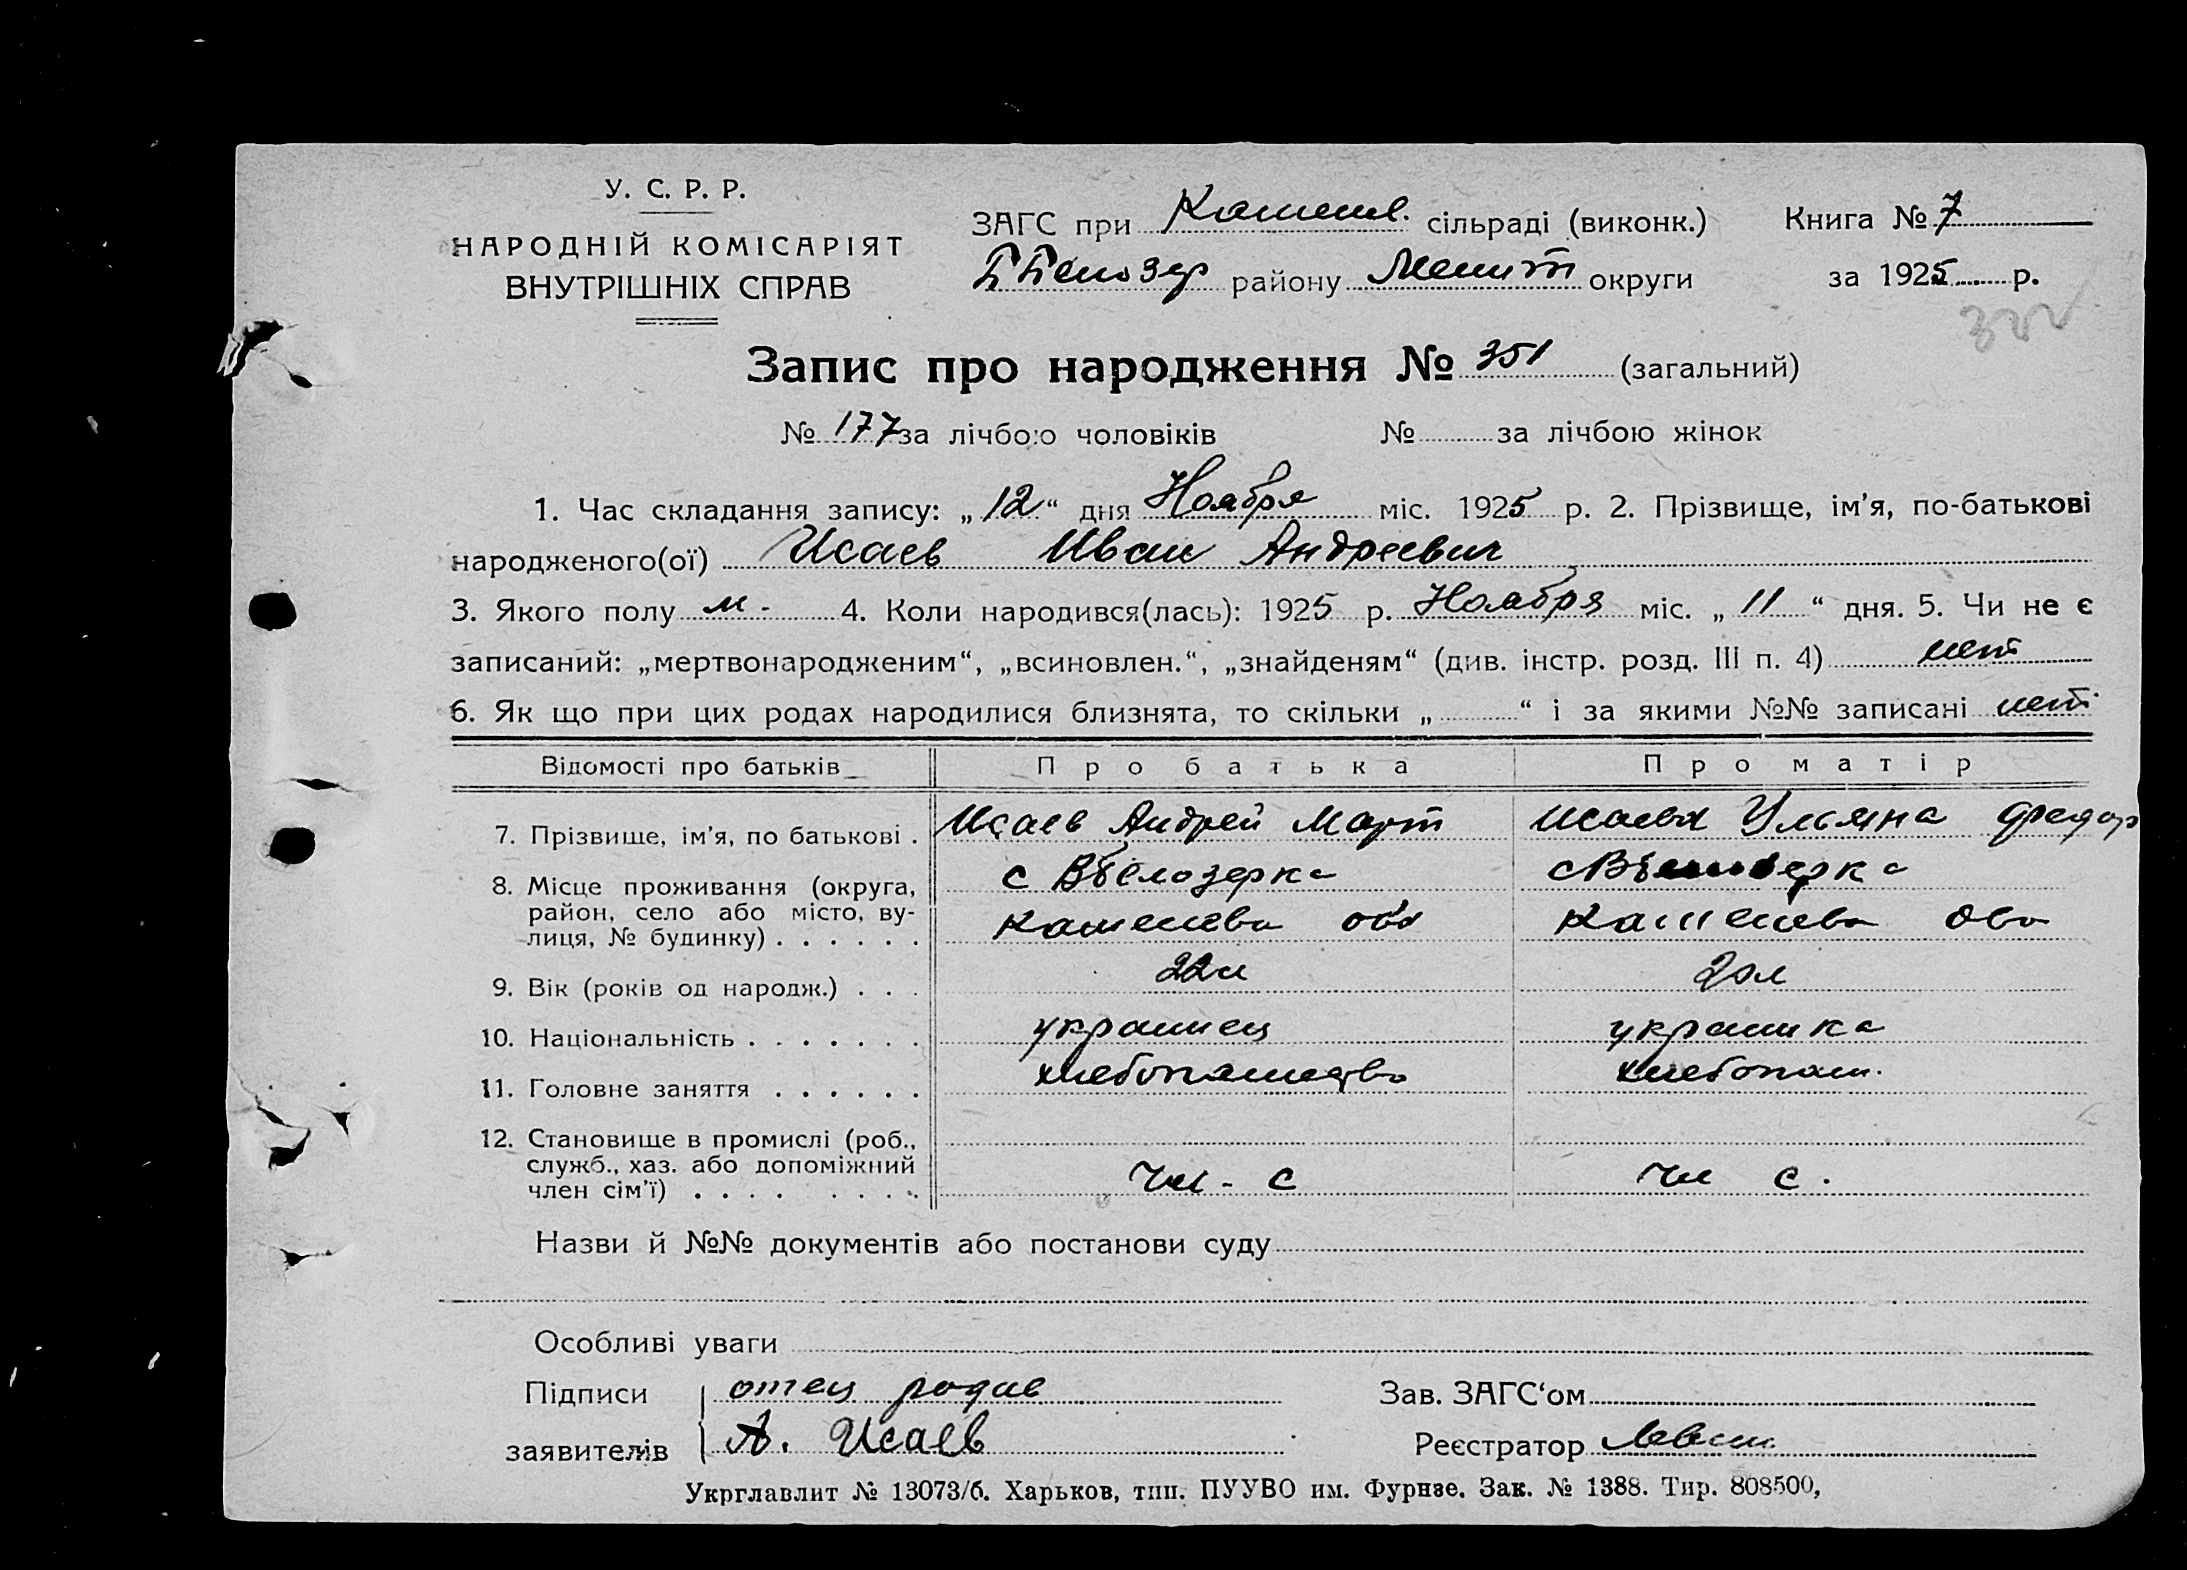 У. С. Р. Р.
НАРОДНІЙ КОМІСАРІЯТ
ВНУТРІШНІХ СПРАВ
ЗАГС при Каменев. сільраді (виконк.) Книга № 7
ББелозер району Мелит округи за 1925 р.
Запис про народження № 351 (загальний)
№ 177 за лічбою чоловіків № за лічбою жінок
1. Час складання запису: „12“ дня Ноября міс. 1925 р. 2. Прізвище, ім’я, по-батькові
народженого(ої) Исаев Иван Андреевич
3. Якого полу м - 4. Коли народився(лась): 1925 р. Ноября міс. „11“ дня. 5. Чи не є
записаний: „мертвонародженим“, „всиновлен.“, „знайденям“ (див. інстр. розд. III п. 4) нет
6. Як що при цих родах народилися близнята, то скільки „ “ і за якими №№ записані нет
Відомості про батьків Про батька Про матір
7. Прізвище, ім’я, по батькові . Исаев Андрей Март Исаева Ульяна Федор
8. Місце проживання (округа, район, село або місто, вулиця, № будинку) . . . . . . с Вбелозерка с Ввелозерка
Каменева Каменева
9. Вік (років од народж.) . . . 22л 20л
10. Національність . . . . . . . украинец украинка
11. Головне заняття . . . . . . хлебопашество хлебопаш.
12. Становище в промислі (роб., служб., хаз. або допоміжний член сім’ї) . . . . . . . . чл - с чл с .
Назви й №№ документів або постанови суду
Особливі уваги
Підписи отец родив Зав. ЗАГС‘ом
заявителів А. Исаев Реєстратор
Укрглавлит № 13073/б. Харьков, тип. ПУУВО им. Фрунзе. Зак. № 1388. Тир. 808500,